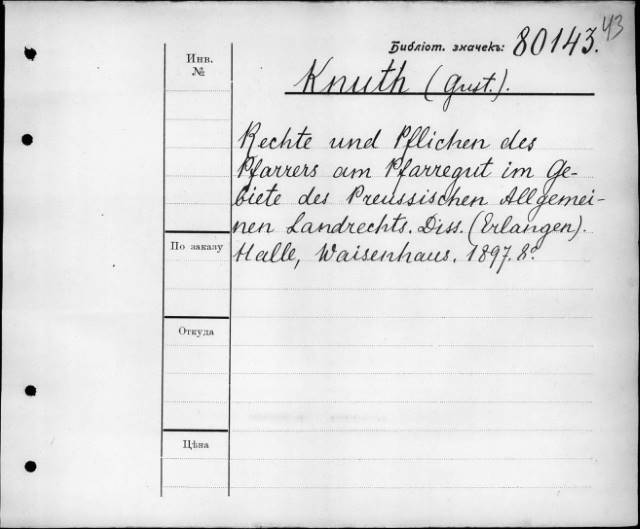 43
Библіот. значекъ: 80143.
Инв.
№
Knuth (Gust.).
Rechte und Pflichen des
Pfarrers am Pfarregut im Ge-
biete des Preussischen Allgemei-
nen Landrechts. Diss. (Erlangen).
По заказу
Halle, Waisenhaus. 1897. 8º
Откуда
Цѣна